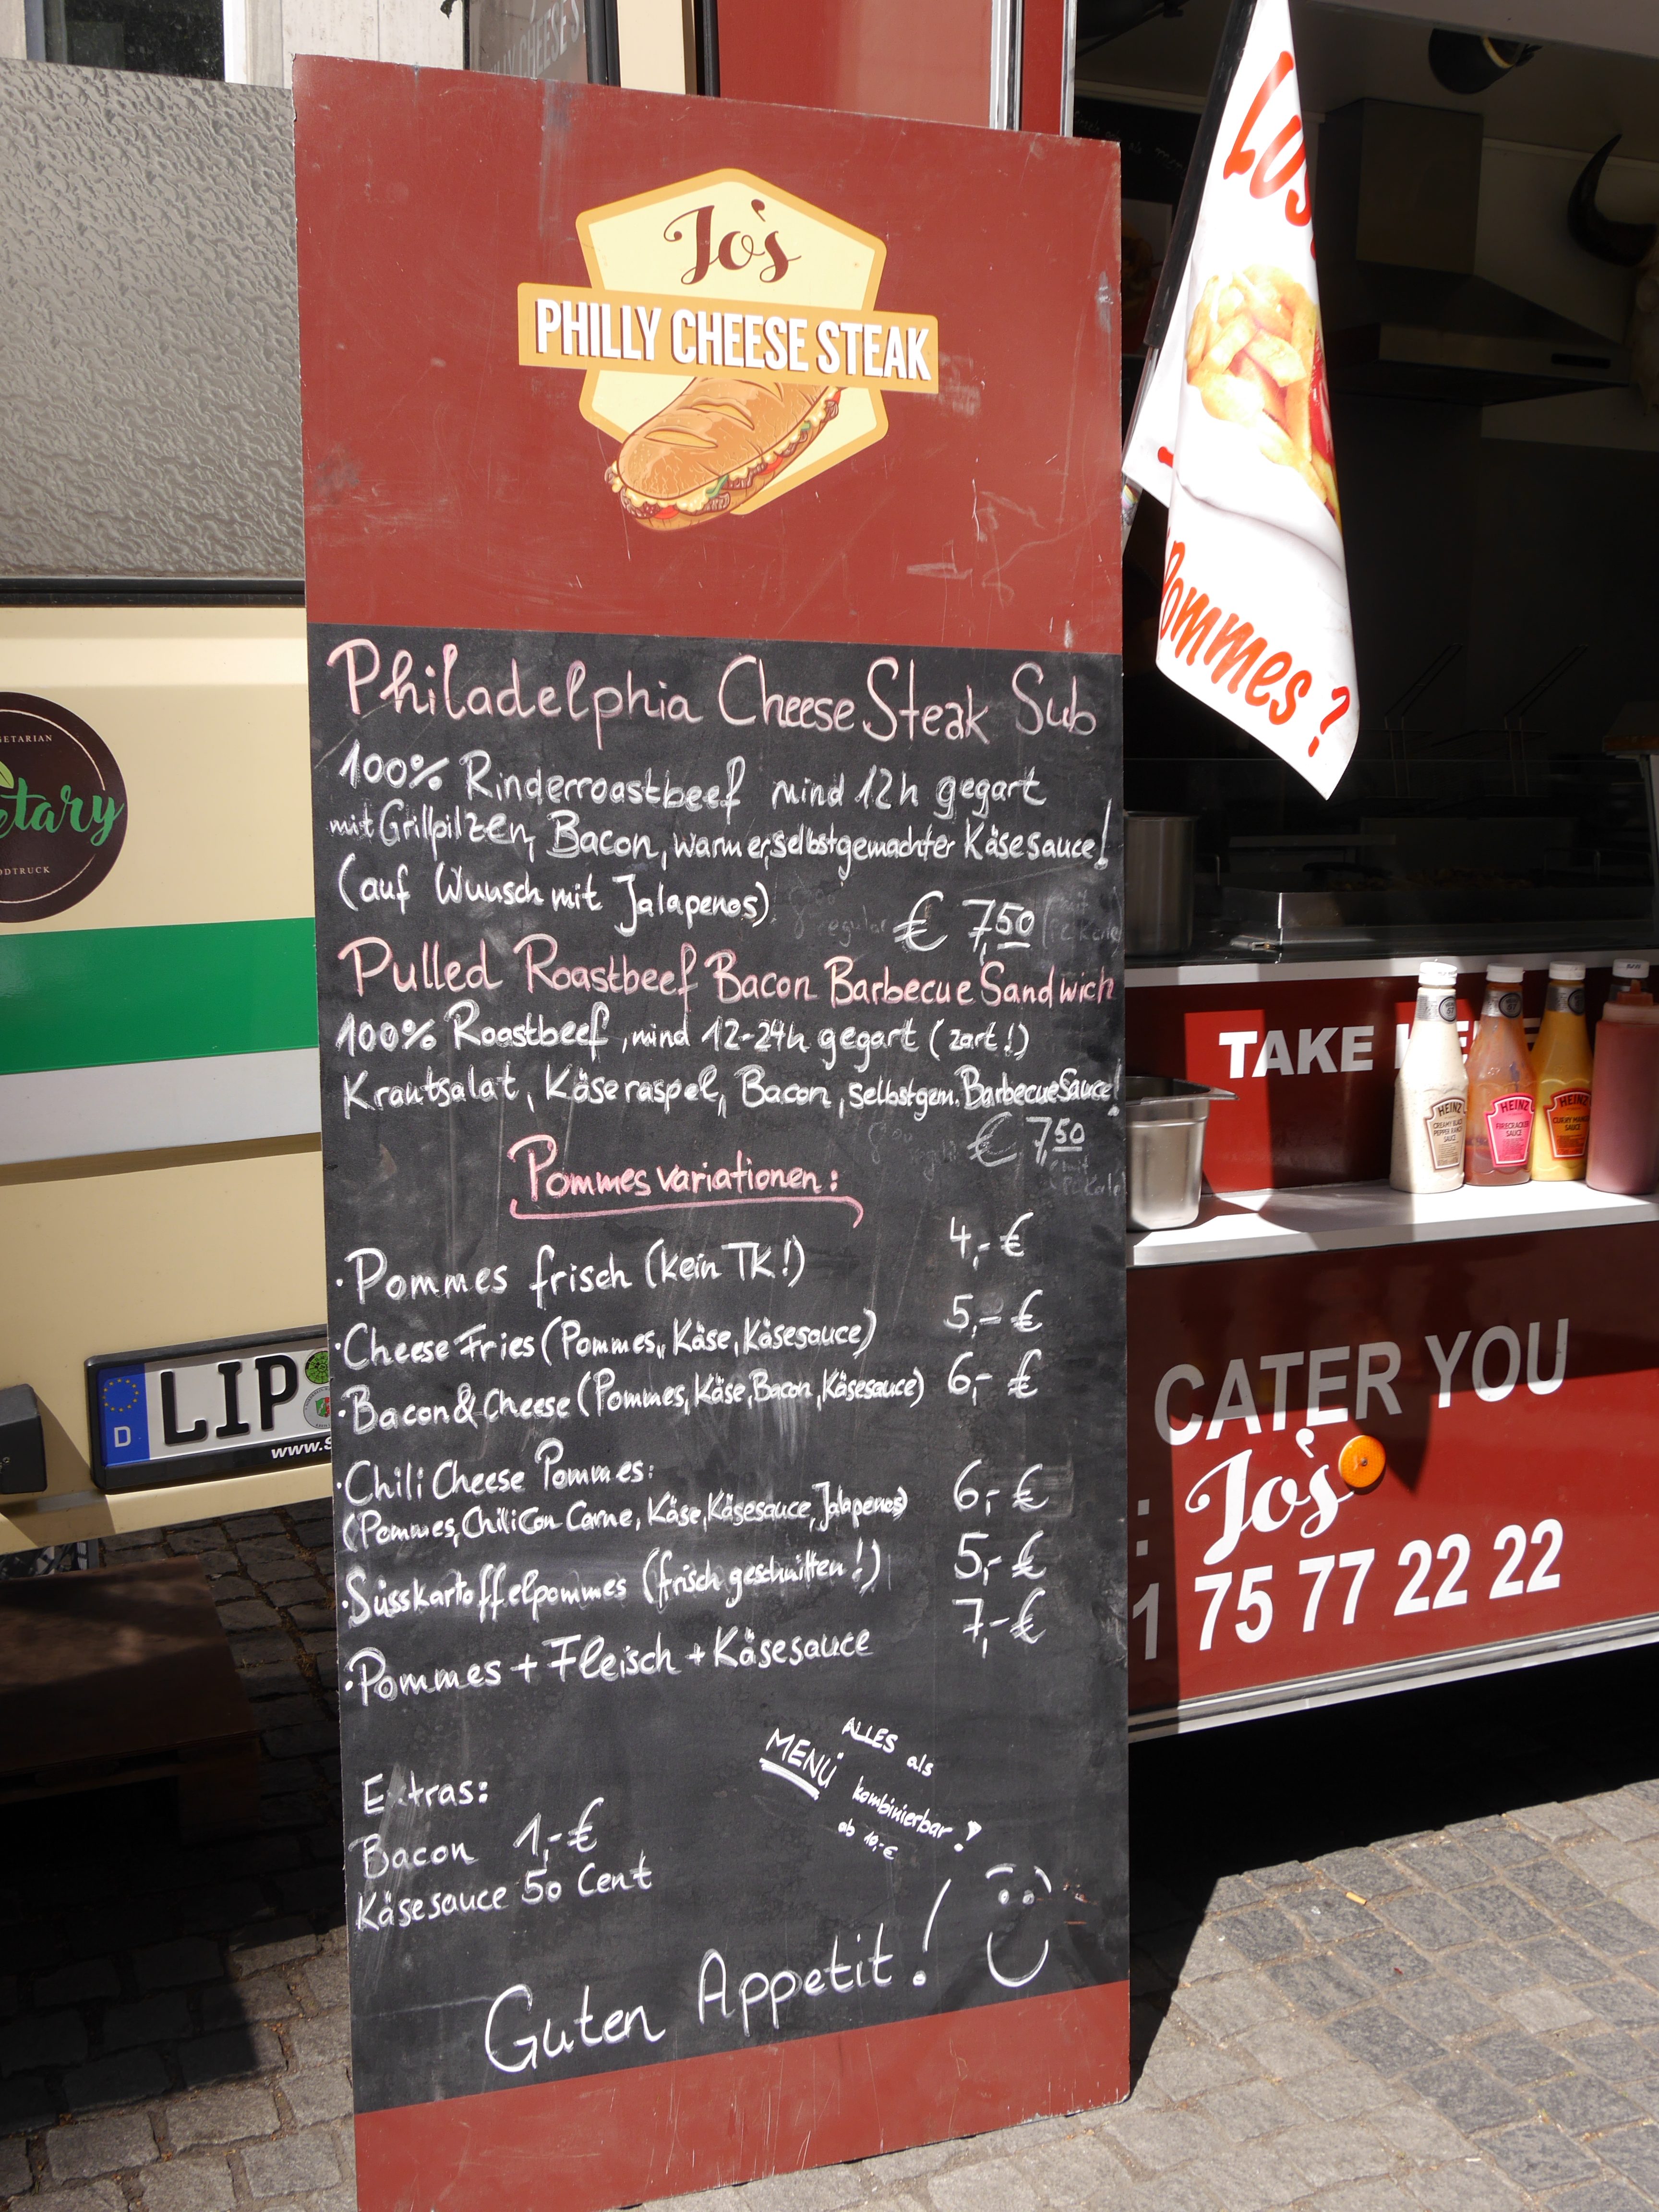 PHILLY CHEESE S
Jo's
PHILLY CHEESE STEAK
Philadelphia Cheese Steak Sub
100% Rinderroastbeef mind 12h gegart
mit Grillpilzen, Bacon, warmer, selbstgemachter Käsesauce!
(auf Wunsch mit Jalapenos)
regular
€ 7,50
Pulled Roastbeef Bacon Barbecue Sandwich
100% Roastbeef, mind 12-24h gegart (zart!)
Krautsalat, Käseraspel, Bacon, selbstgem. Barbecue Sauce!
€ 7,50
Pommesvariationen:
·Pommes frisch (kein TK!) 4,-€
·Cheese Fries (Pommes, Käse, Käsesauce) 5,-€
·Bacon & Cheese (Pommes, Käse, Bacon, Käsesauce) 6,-€
·Chili Cheese Pommes:
(Pommes, Chili Con Carne, Käse, Käsesauce, Jalapenos) 6,-€
·Süsskartoffelpommes (frisch geschnitten!) 5,-€
·Pommes + Fleisch + Käsesauce 7,-€
ALLES als
MENÜ
kombinierbar!
ab 10,-€
Extras:
Bacon 1,-€
Käsesauce 50 Cent
Guten Appetit!
LUS
Pommes?
TAKE
HEINZ
CREAMY BLACK PEPPER RANCH SAUCE
HEINZ
FIRECRACKER SAUCE
HEINZ
CURRY MANGO SAUCE
CATER YOU
: Jo's
1 75 77 22 22
GETARIAN
etary
ODTRUCK
D
LIP
www.s